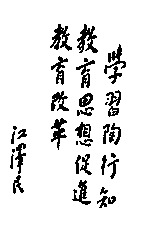 學習陶行知
教育思想促進
教育改革
江澤民